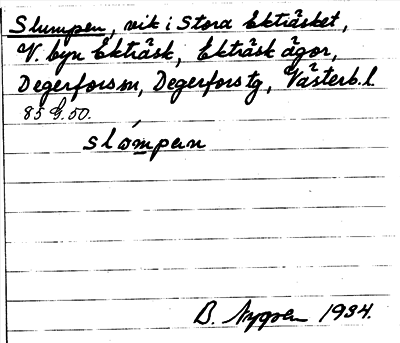 Slumpen, vik i Stora Ekträsket,
V. byn Ekträsk, Ekträsk ägor,
Degerforsm, Degerfors tg, Västerb. l.
85 G. 50.
slómpen
B. Nygren 1934.